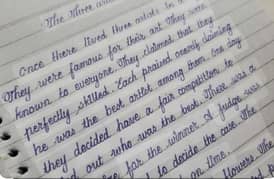 The Three
Once there lived three artists in a
They were famous for their art. They were
known to everyone. They claimed that they
perfectly skilled. Each praised oneself claiming
he was the best artist among them. One day
they decided have a fair competition to
out who was the best. There was a
for the winner. A judge was
to decide the case. The
on time.
flowers. The